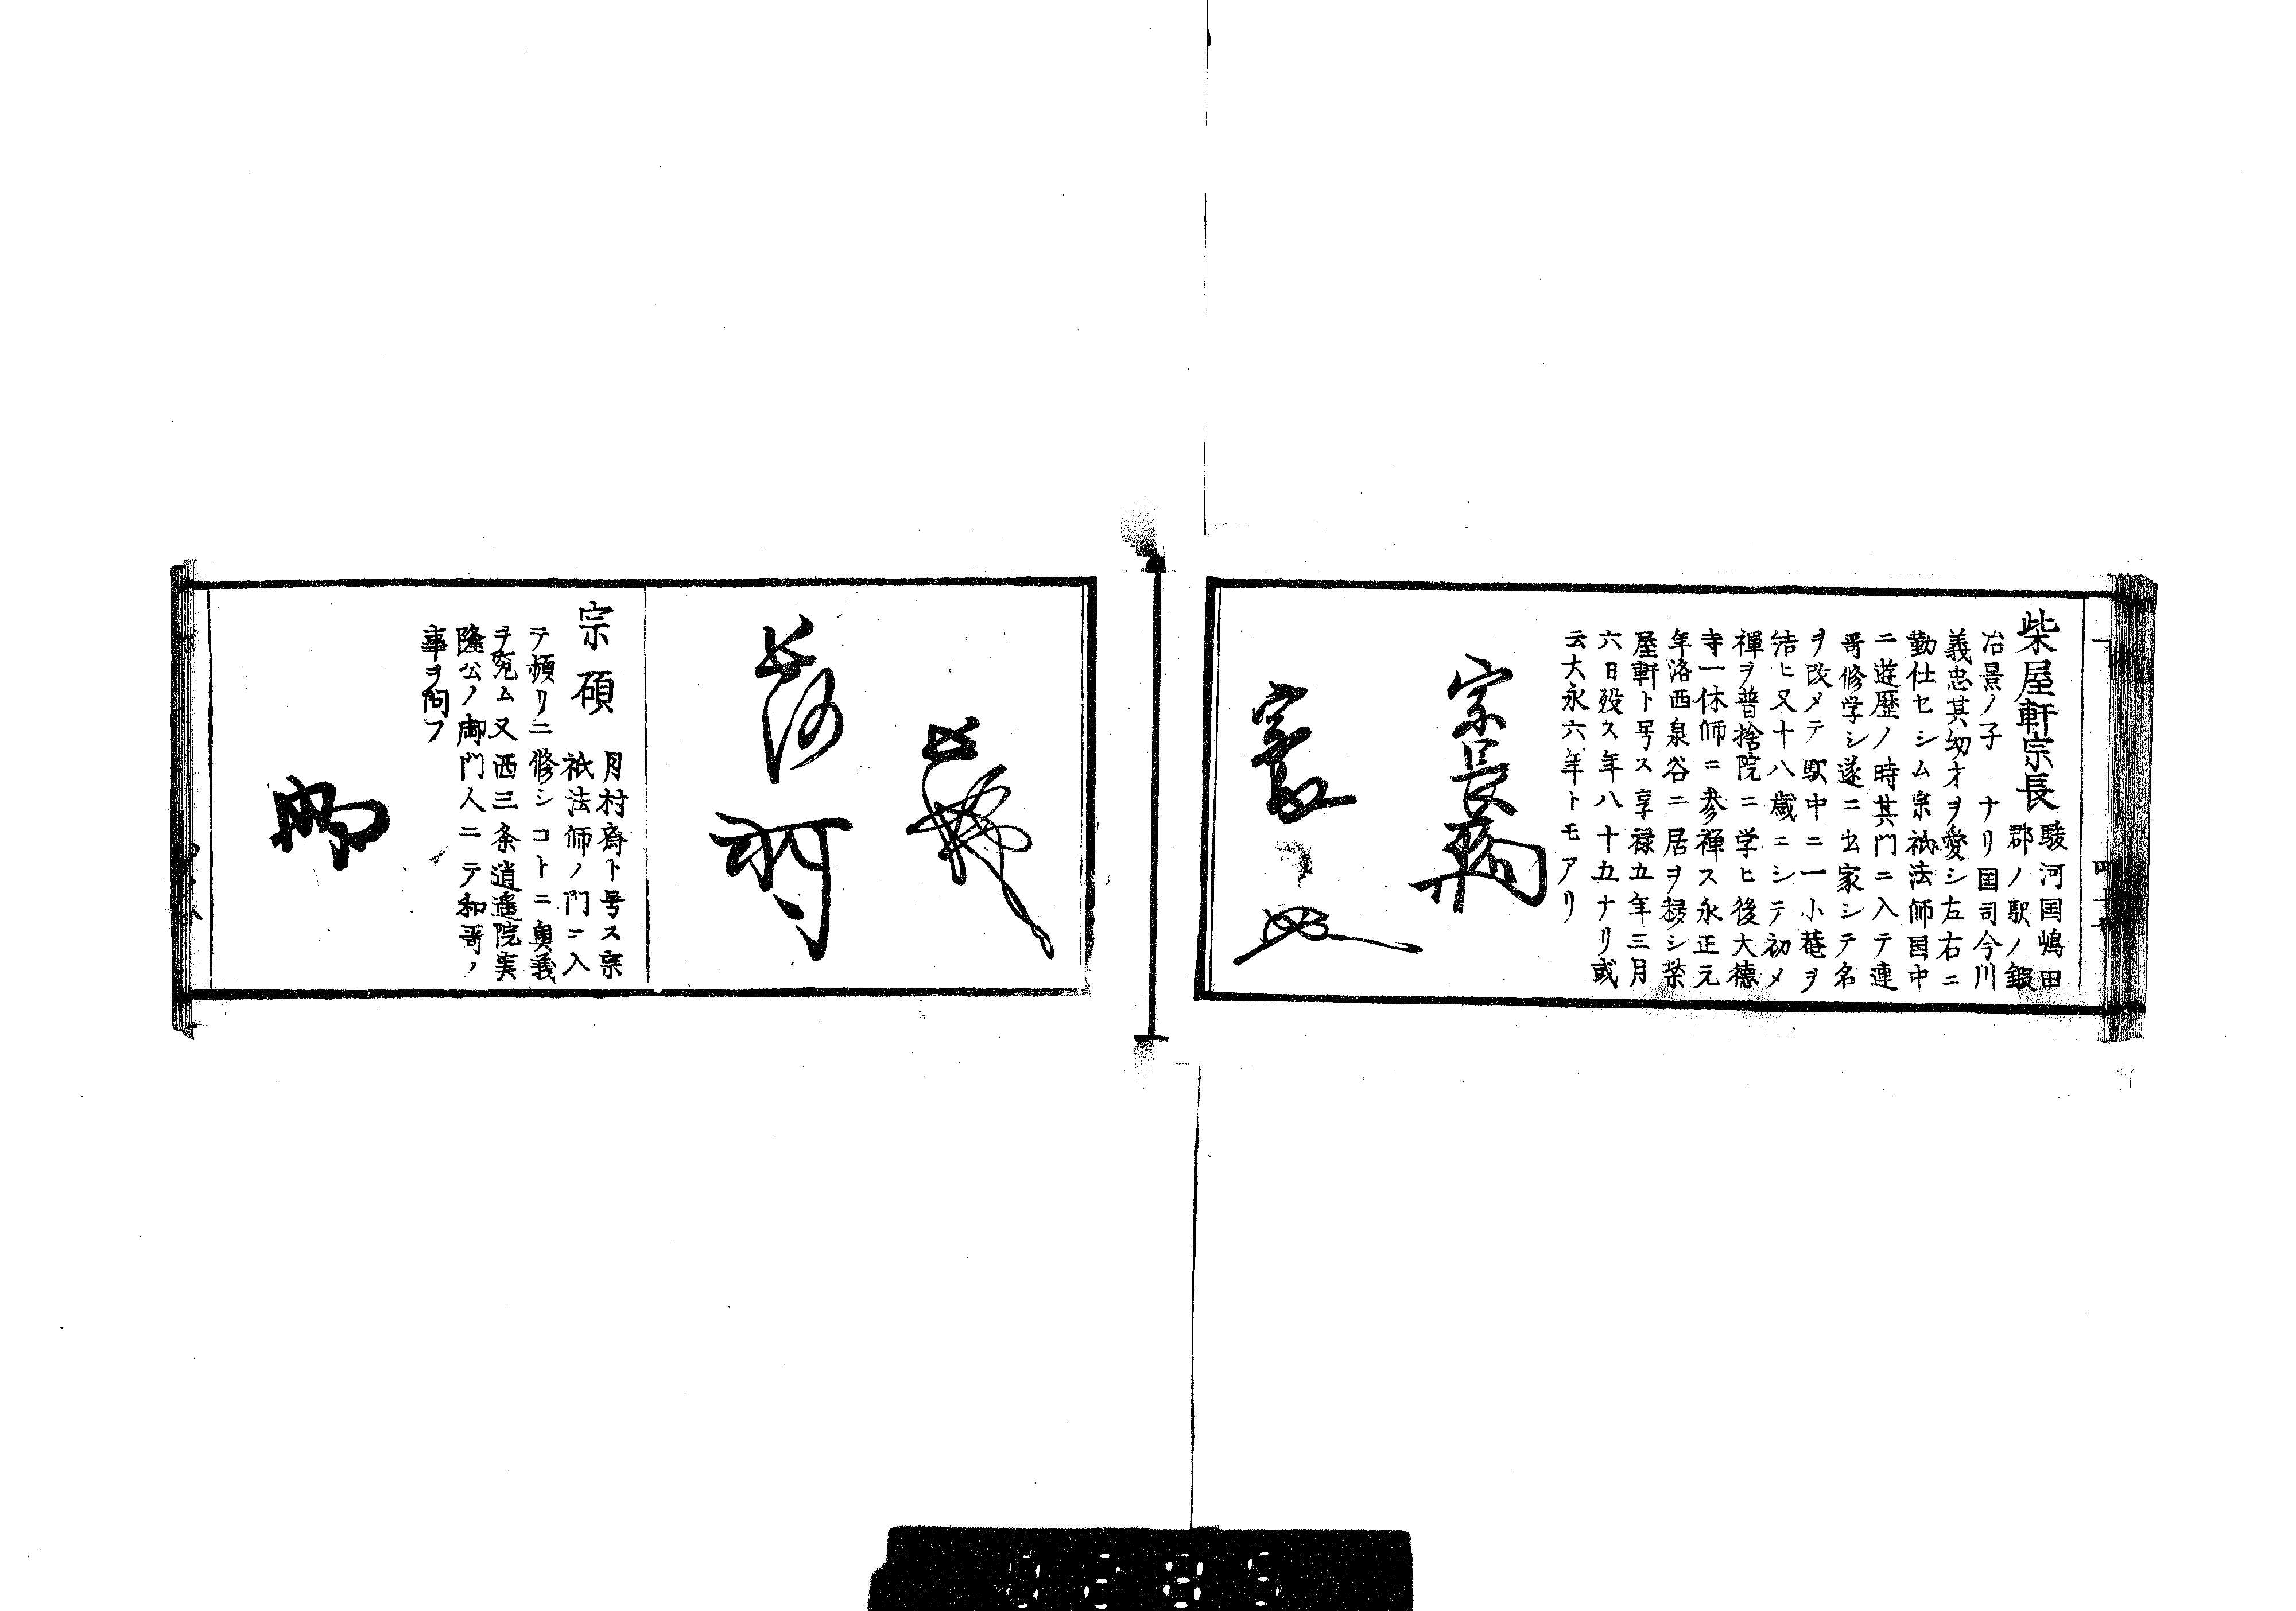 柴屋軒宗長
駿河国嶋田
郡ノ駅ノ鍜
冶景ノ子 ナリ国司今川
義忠其幼才ヲ愛シ左右ニ
勤仕セシム宗祇法師国中
ニ遊歴ノ時其門ニ入テ連
哥修学シ遂ニ出家シテ名
ヲ改メテ駅中ニ一小菴ヲ
結ヒ又十八歳ニシテ初メ
禅ヲ普捨院ニ学ヒ後大德
寺一休師ニ参禅ス永正元
年洛西泉谷ニ居ヲ移シ柴
屋軒ト号ス享禄五年三月
六日殁ス年八十五ナリ或
云大永六年トモアリ
宗長
宗碩
月村斎ト号ス宗
祇法師ノ門ニ入
テ頻リニ修シコトニ奥義
ヲ究ム又西三条逍遥院実
隆公ノ御門人ニテ和哥ノ
事ヲ問フ